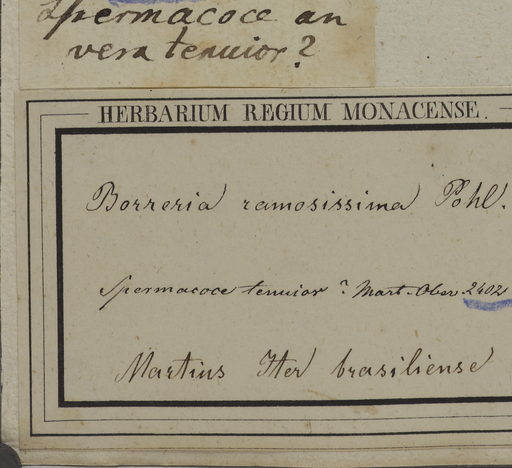 Spermacoce an
vera tenuior?
HERBARIUM REGIUM MONACENSE.
Borreria ramosissima Pohl.
Spermacoce tenuior? Mart. Obs. 2402
Martius Iter brasiliense